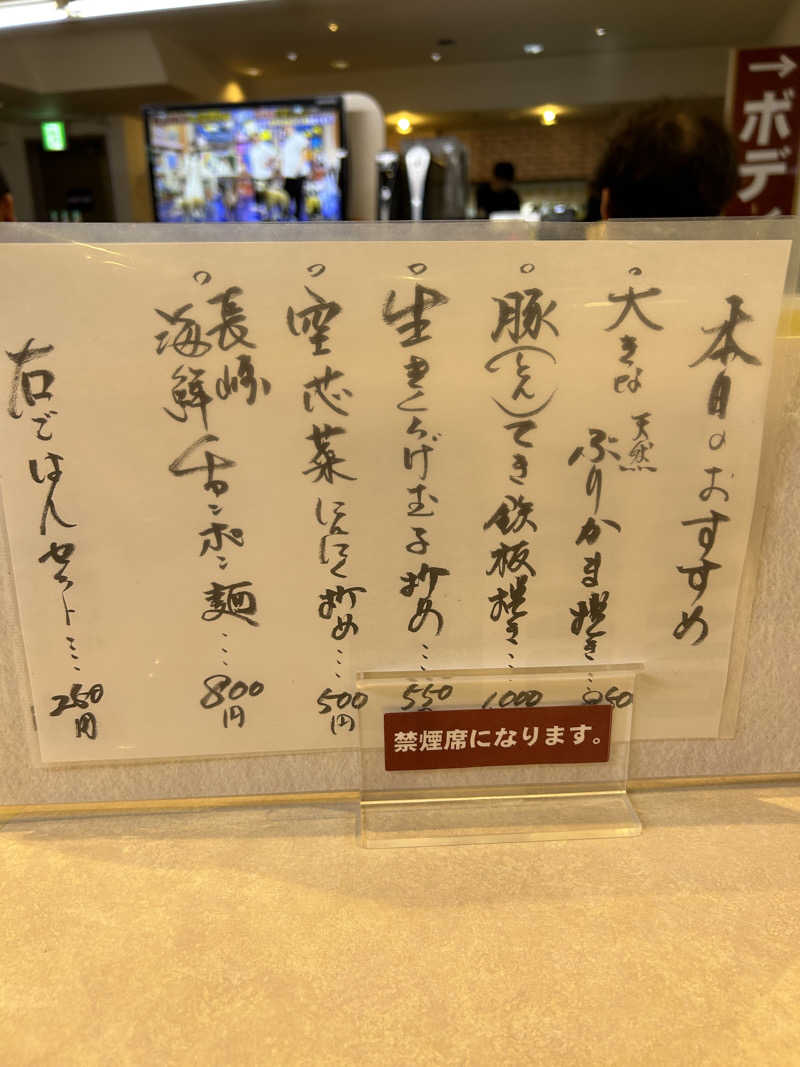 本日のおすすめ
大きな天然ぶりかま焼き…950
豚(とん)てき鉄板焼き…1000
生きくらげ玉子炒め…550
空芯菜にんにく炒め…500円
長崎海鮮チャンポン麺…800円
右ごはんセット…250円
禁煙席になります。
→ボディ